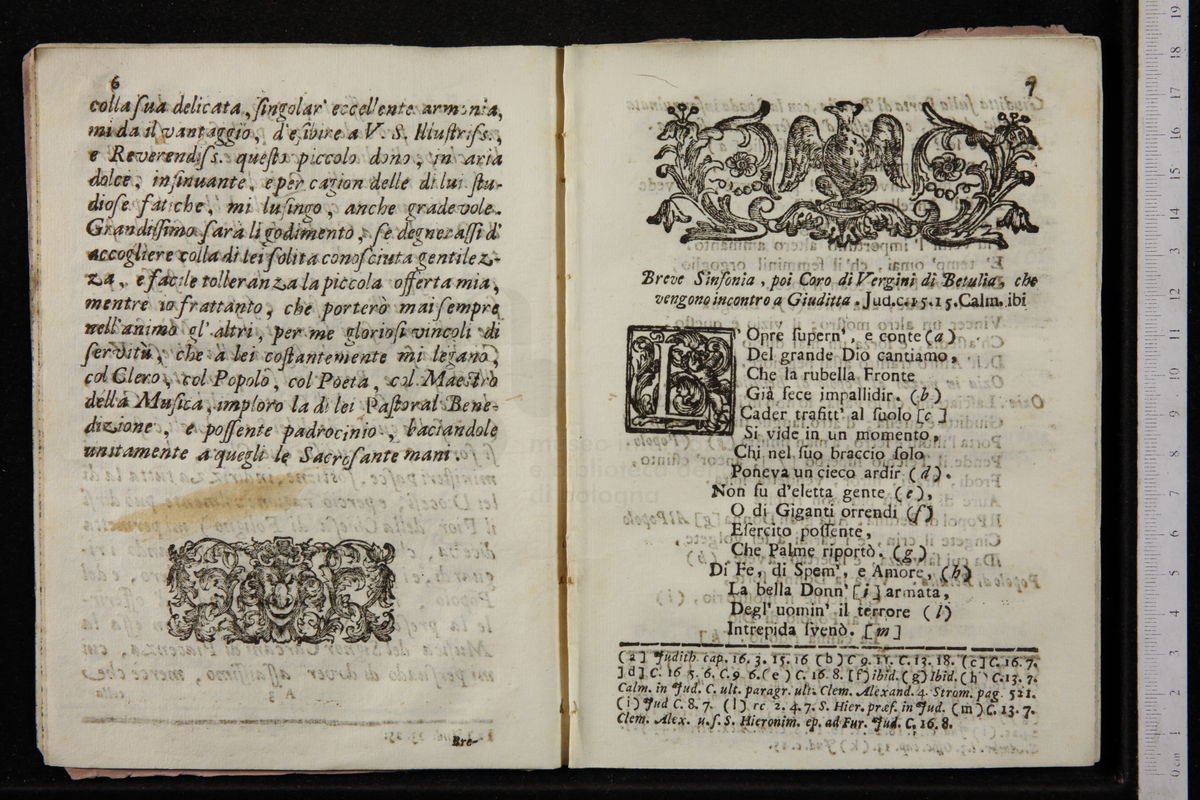 6
colla ſua delicata, ſingolar' eccellente armonia,
mi da il vantaggio, d'eſibire a V. S. Illuſtriſs.,
e Reverendiſs. queſto piccolo dono, in aria
dolce, inſinuante, e per cagion delle di lui ſtu-
dioſe fatiche, mi luſingo, anche gradevole.
Grandiſſimo ſaralli godimento, ſe degneraſſi d'
accogliere colla di lei ſolita conoſciuta gentilez-
za, e facile tolleranza la piccola offerta mia,
mentre io frattanto, che porterò mai ſempre
nell'animo gl'altri, per me glorioſi vincoli di
ſervitù, che a lei coſtantemente mi legano,
col Clero, col Popolo, col Poeta, col Maeſtro
della Muſica, imploro la di lei Paſtoral Bene-
dizione, e poſſente padrocinio, baciandole
unitamente a quegli le Sacroſante mani.
Bre-
7
Breve Sinfonia, poi Coro di Vergini di Betulia, che
vengono incontro a Giuditta. Jud. c. 15. 15. Calm. ibi
L'Opre ſupern', e conte (a)
Del grande Dio cantiamo,
Che la rubella Fronte
Già fece impallidir. (b)
Cader trafitt' al ſuolo [c]
Si vide in un momento,
Chi nel ſuo braccio ſolo
Poneva un cieco ardir. (d).
Non fu d'eletta gente (e),
O di Giganti orrendi (f)
Eſercito poſſente,
Che Palme riportò. (g)
Di Fe, di Spem', e Amore, (h)
La bella Donn' [i] armata,
Degl' uomin' il terrore (l)
Intrepida ſvenò. [m]
(a] Judith. cap. 16. 3. 15. 16 (b) C 9. 11. C. 13. 18. (c] C. 16. 7.
]d] C. 16 5. 6. C. 9 6. (e) C. 16. 8. [f) ibid. (g) Ibid. (h) C. 13. 7.
Calm. in Jud. C. ult. paragr. ult. Clem. Alexand. 4. Strom. pag. 521.
(i) Jud C. 8. 7. (l) rc 2. 4. 7. S. Hier. præf. in Jud. (m) C. 13. 7.
Clem. Alex. u. ſ. S. Hieronim. ep. ad Fur. Jud. C. 16. 8.